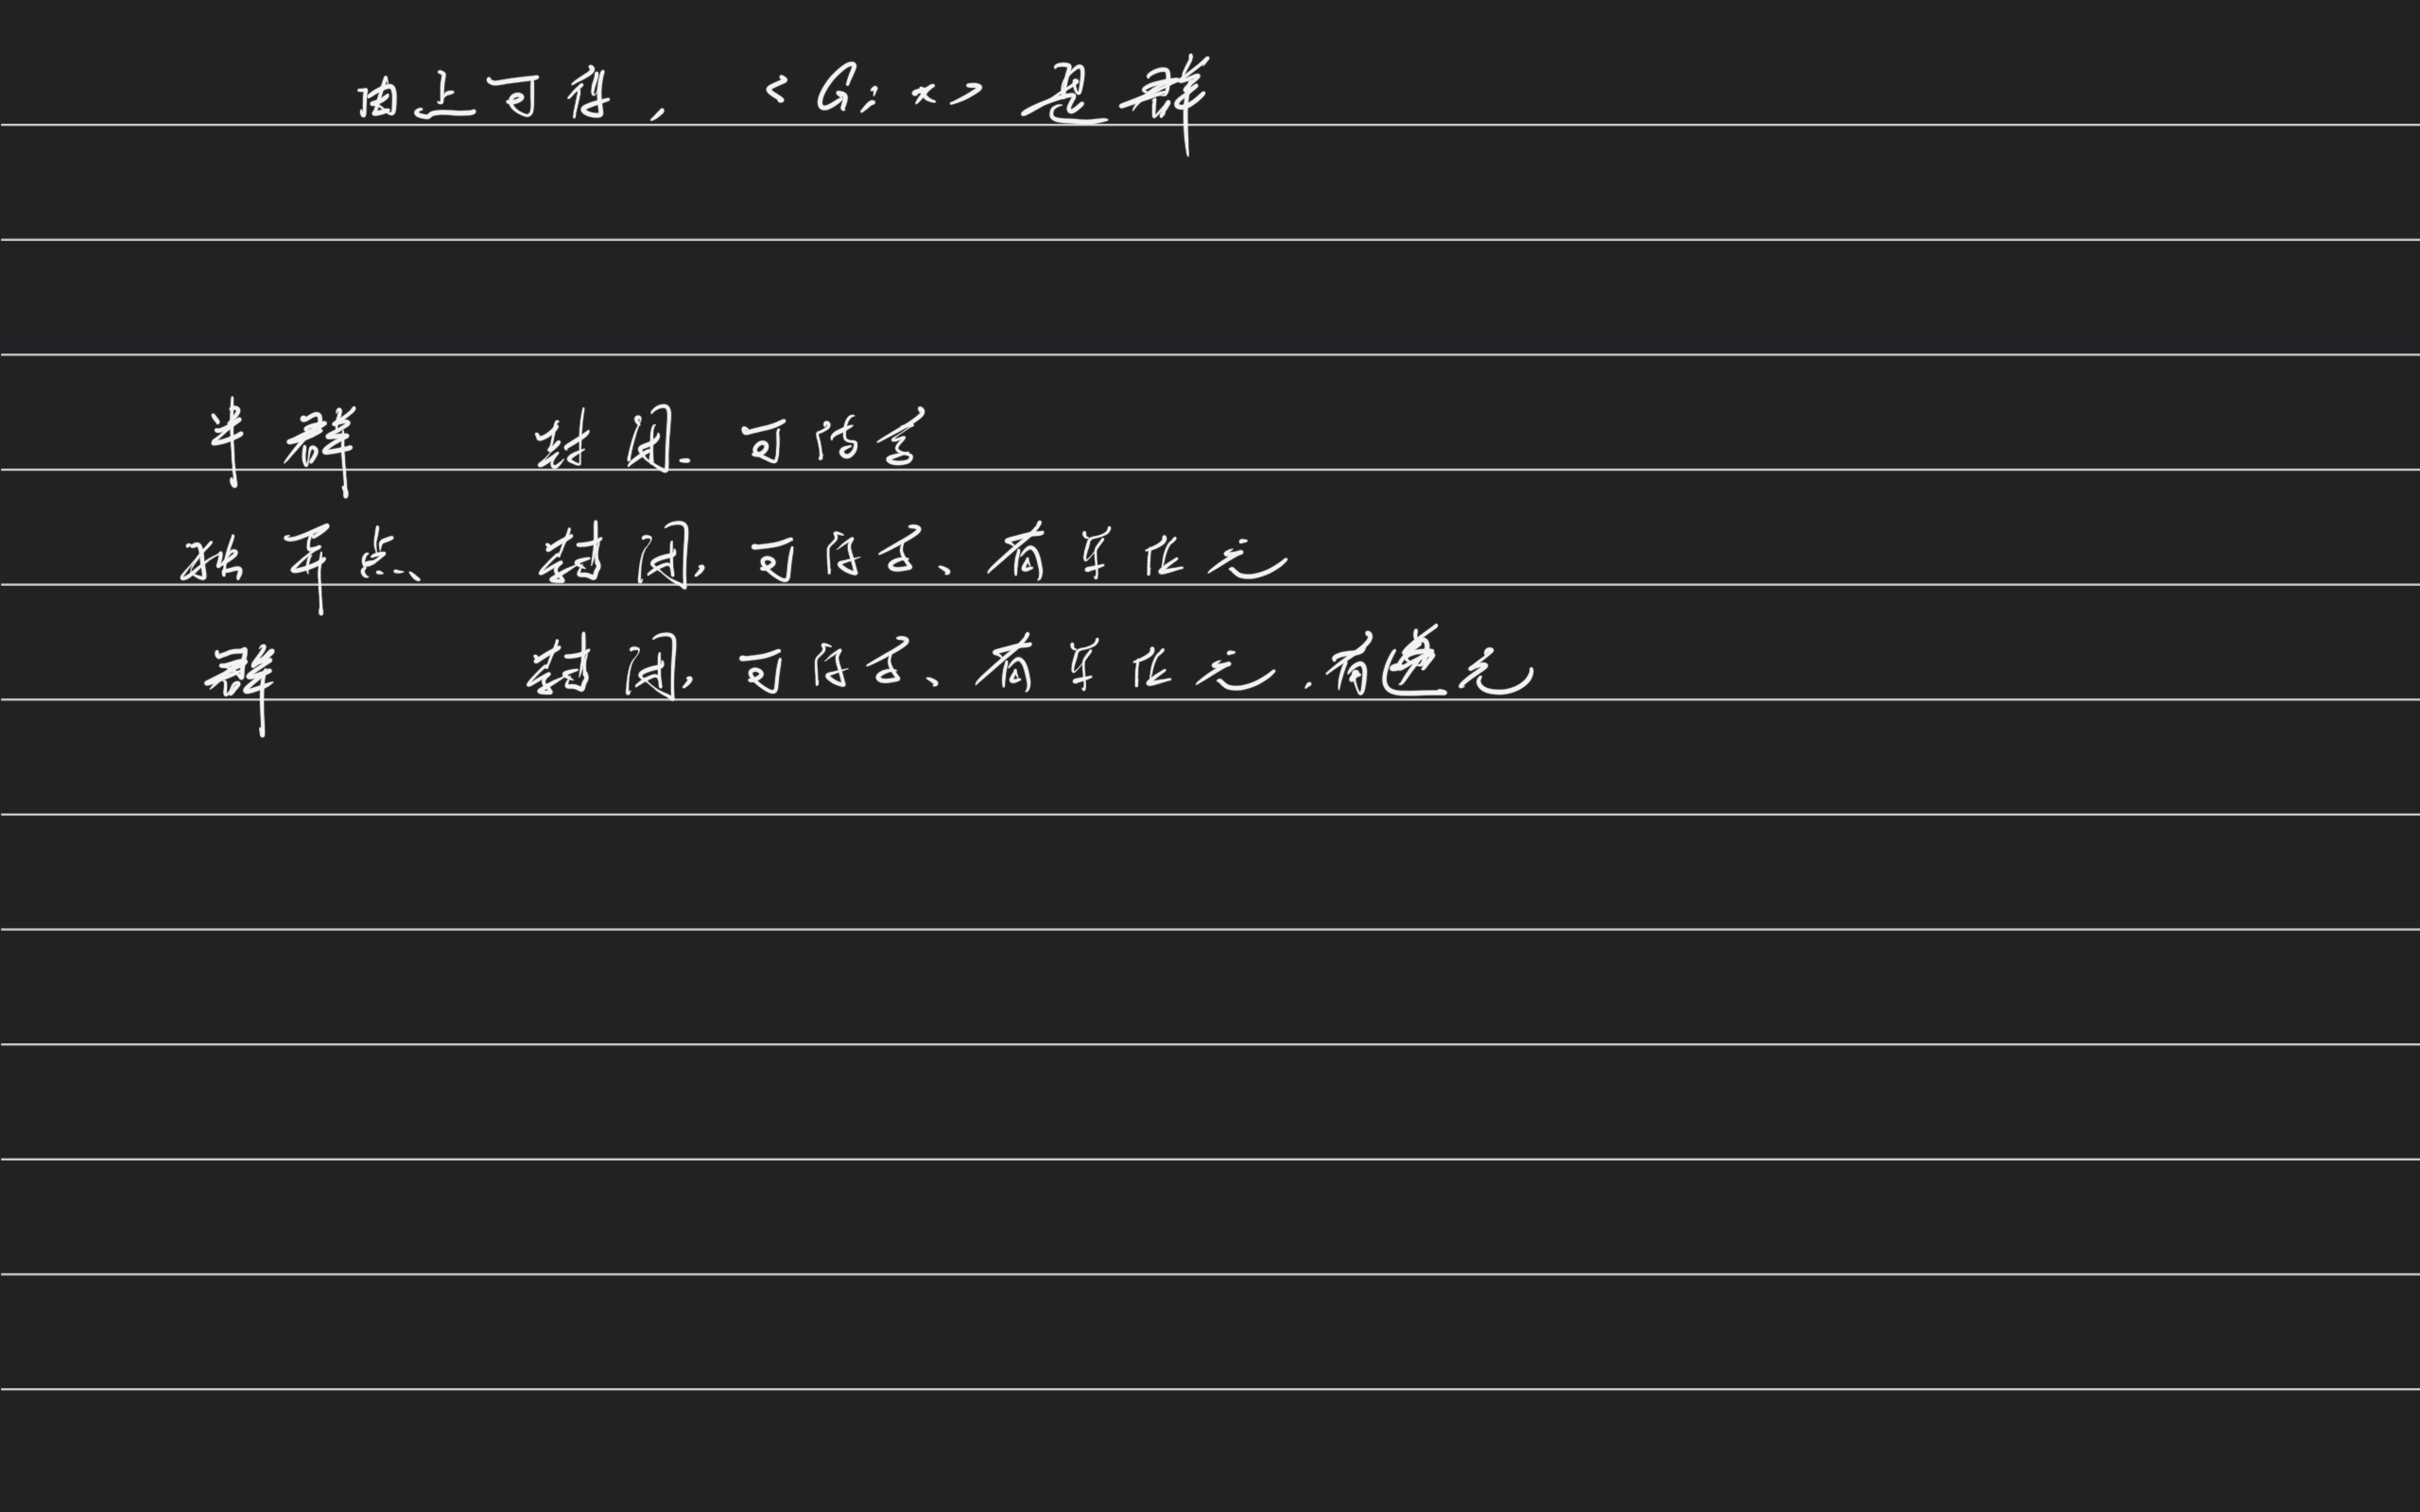 由上可得, <G; ×> 是群
半群 封闭. 可结合
独异点、 封闭, 可结合、有单位元
群 封闭, 可结合、有单位元. 有逆元